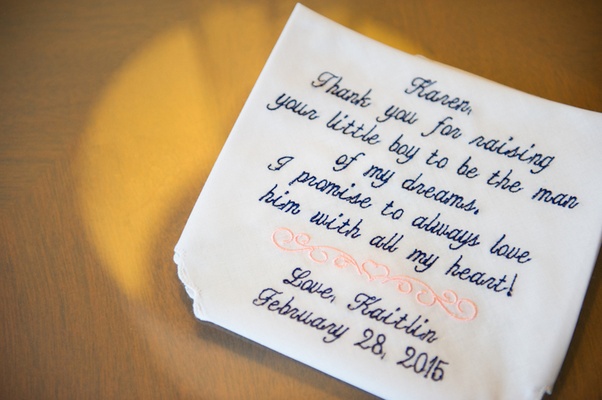 Karen,
Thank you for raising
your little boy to be the man
of my dreams.
I promise to always love
him with all my heart!
Love, Kaitlin
February 28, 2015